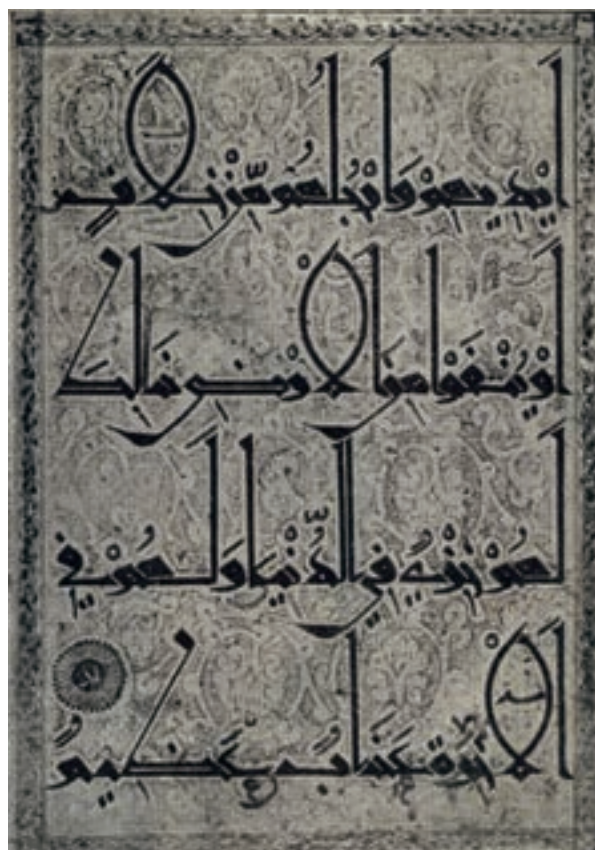 اَيْدِيهِمْ وَاَرْجُلُهُمْ مِّنْ خِلَافٍ
اَوْ يُنْفَوْا مِنَ الْاَرْضِ ذَلِكَ
لَهُمْ خِزْيٌ فِي الدُّنْيَا وَلَهُمْ فِي
الْآخِرَةِ عَذَابٌ عَظِيمٌ